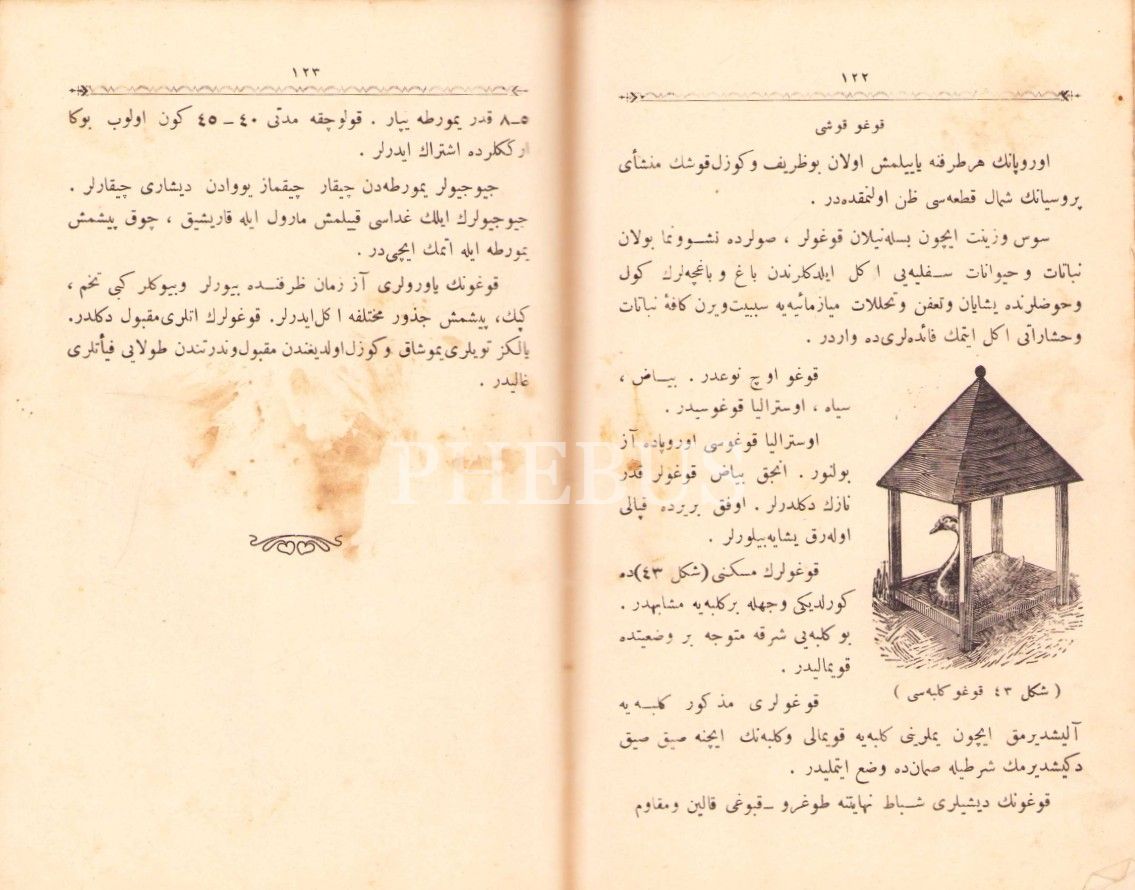 ١٢٢
قوغو قوشى
اوروپانك هر طرفنه ياييلمش اولان بو ظريف و كوزل قوشك منشأى
پروسيانك شمال قطعه‌سى ظن اولنمقده‌در .
سوس و زينت ايچون بسله‌نيلان قوغولر ، صولرده نشو و نما بولان
نباتات و حيوانات سفليه‌يى اكل ايلدكلرندن باغ و باغچه‌لرك كول
و حوضلرنده يشايان و تعفن و تحللات ميازمائيه‌يه سببيت ويرن كافهٔ نباتات
و حشاراتى اكل ايتمك فائده‌لرى‌ده واردر .
قوغو اوچ نوعدر . بياض ،
سياه ، اوستراليا قوغوسيدر .
اوستراليا قوغوسى اوروپاده آز
بولنور . انجق بياض قوغولر قدر
نازك دكلدرلر . اوفق بر يرده قپالى
اوله‌رق يشايه‌بيلورلر .
قوغولرك مسكنى (شكل ٤٣) ده
كورلديكى وجهله بر كلبه‌يه مشابهدر .
بو كلبه‌يى شرقه متوجه بر وضعيتده
قويماليدر .
( شكل ٤٣ قوغو كلبه‌سى )
قوغولرى مذكور كلبه‌يه
آليشديرمق ايچون يملرينى كلبه‌يه قويمالى و كلبه‌نك ايچنه صيق صيق
دكيشديرمك شرطيله صمان‌ده وضع ايتمليدر .
قوغونك ديشيلرى شباط نهايتنه طوغرو ـ قبوغى قالين و مقاوم
١٢٣
٥ـ٨ قدر يمورطه يپار . قولوچقه مدتى ٤٠ ـ ٤٥ كون اولوب بوكا
اركك‌لرده اشتراك ايدرلر .
جيوجيولر يمورطه‌دن چيقار چيقماز يووادن ديشارى چيقارلر .
جيوجيولرك ايلك غداسى قييلمش مارول ايله قاريشيق ، چوق پيشمش
يمورطه ايله اتمك ايچى‌در .
قوغونك ياورولرى آز زمان ظرفنده بيورلر و بيوكلر كبى تخم ،
كپك ، پيشمش جذور مختلفه اكل ايدرلر. قوغولرك اتلرى مقبول دكلدر.
يالكز تويلرى يموشاق و كوزل اولديغندن مقبول و ندرتندن طولايى فيأتلرى
غاليدر .
PHEBUS